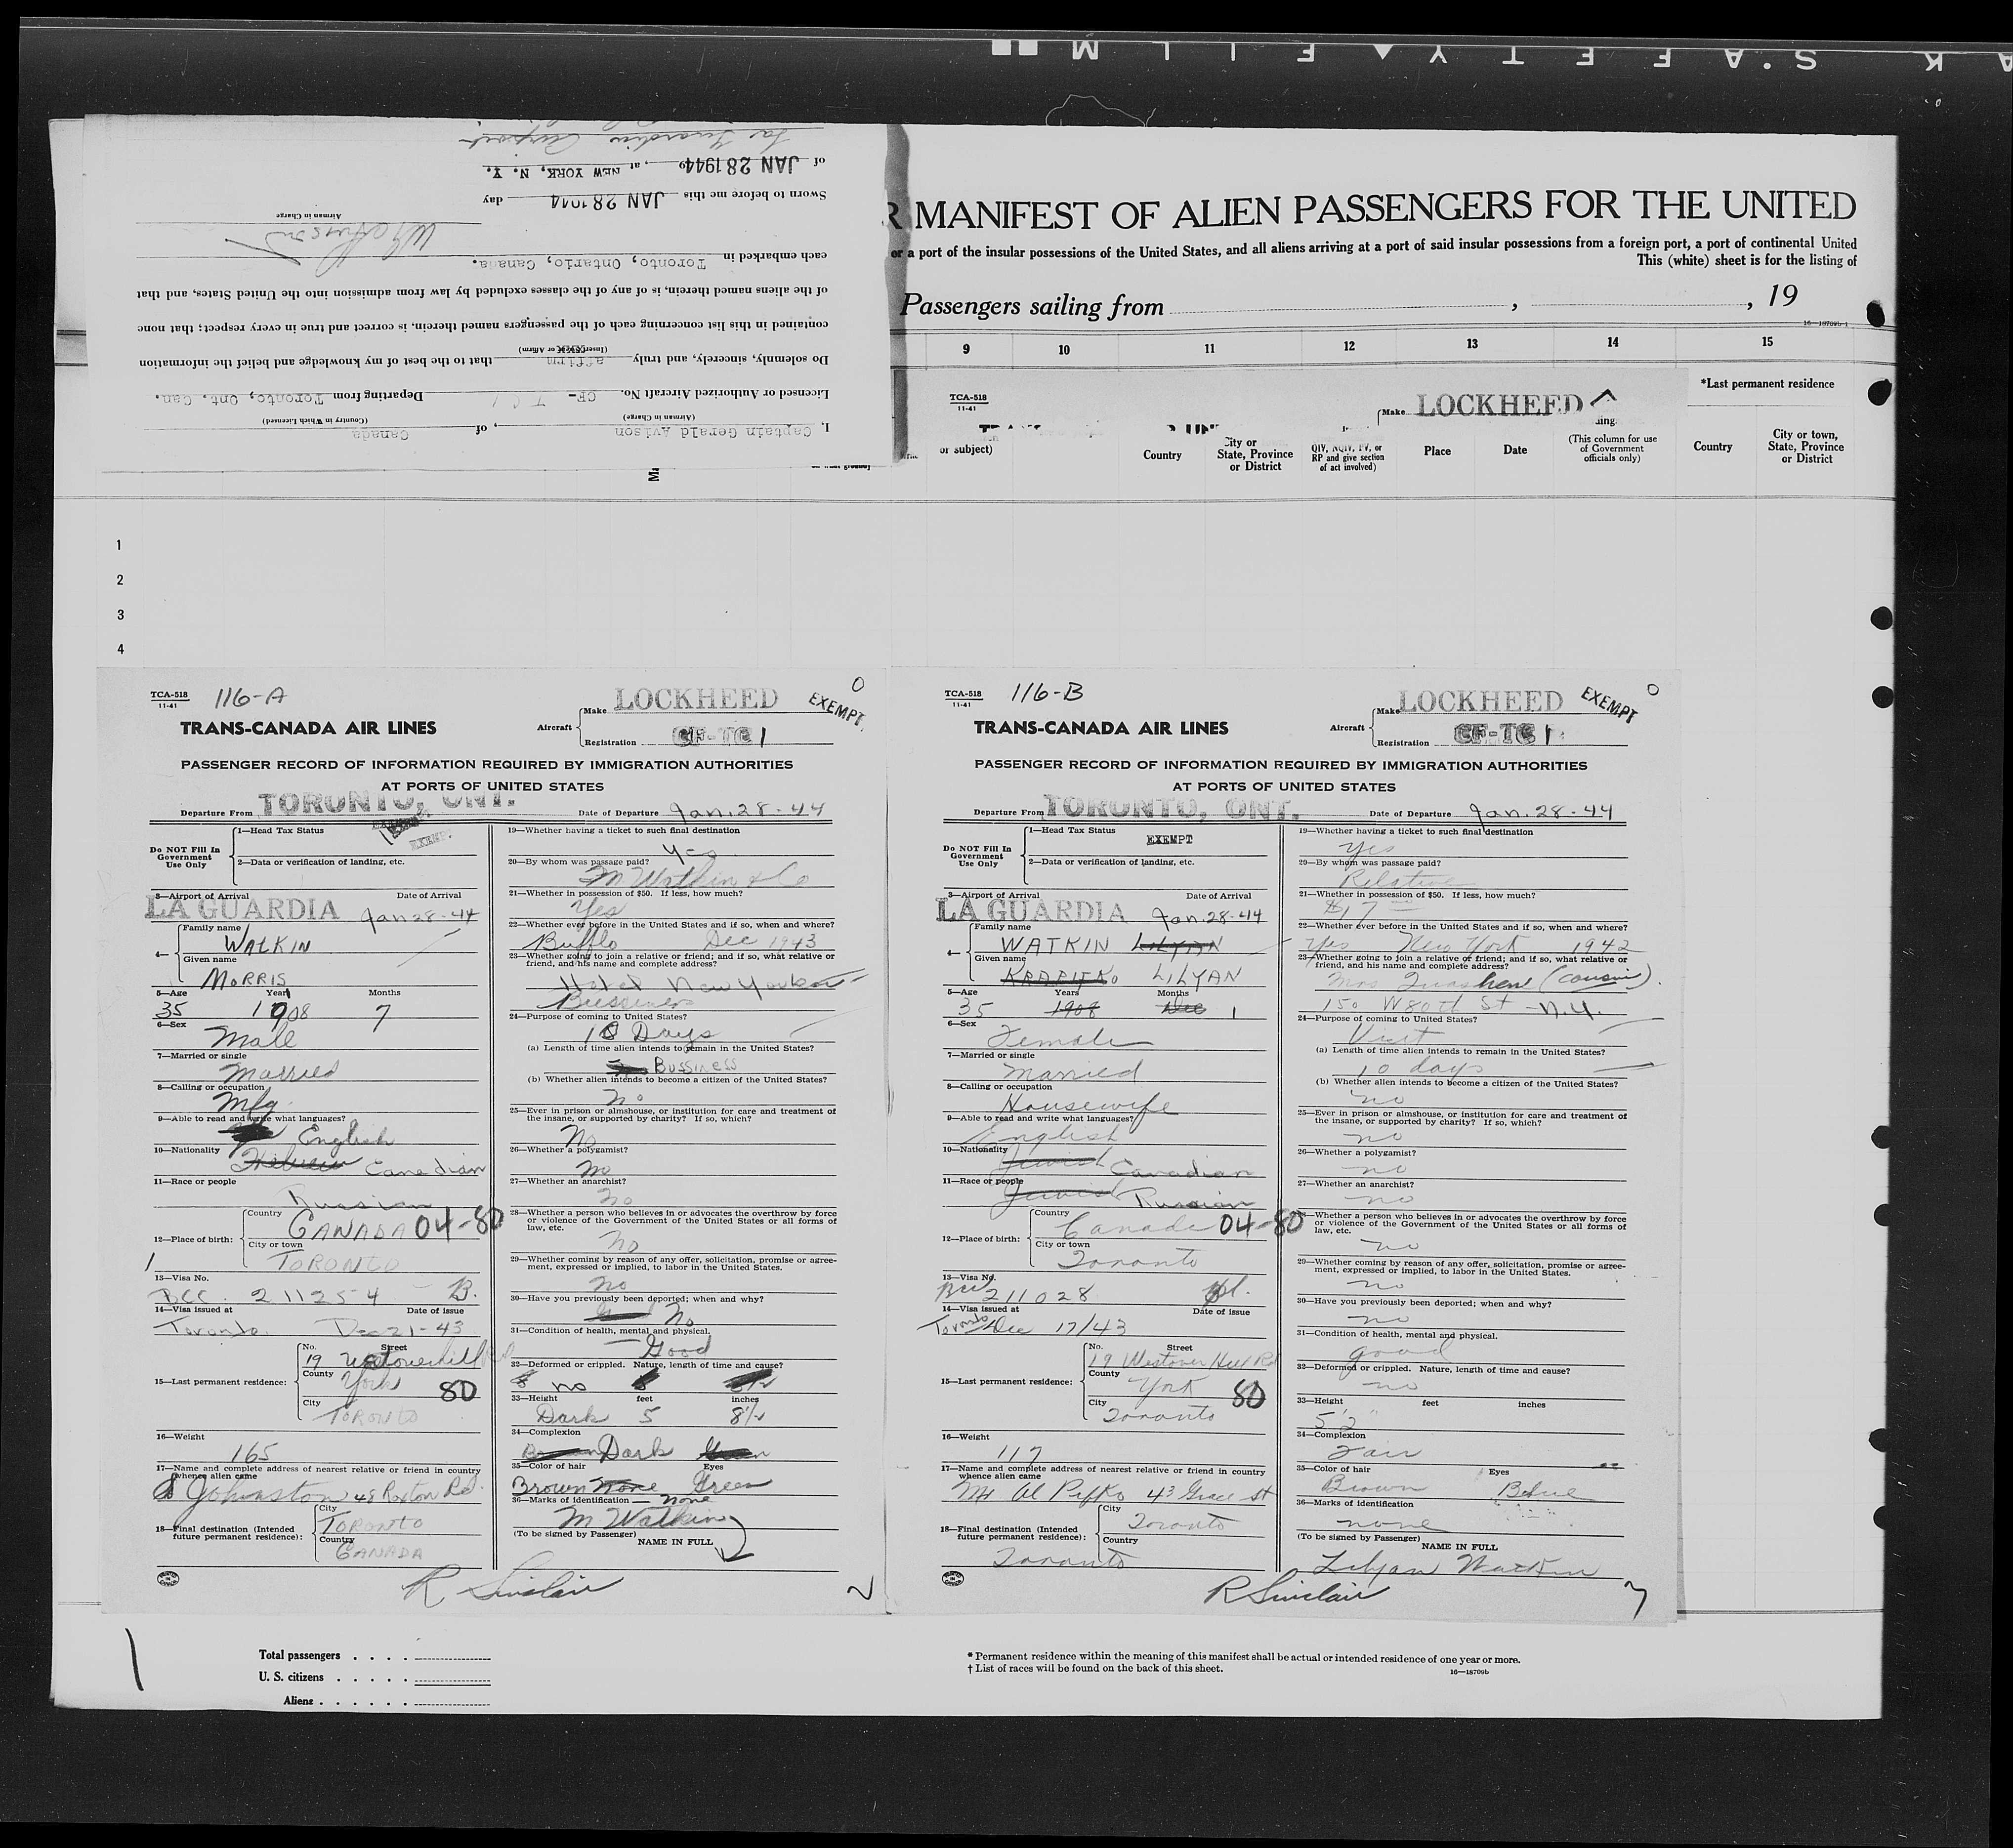 SAFETY FILM
of JAN 28 1944 19 , at NEW YORK, N. Y.
Sworn to before me this JAN 28 1944 day
Airman in Charge
each embarked in Toronto, Ontario, Canada.
of the aliens named therein, is of any of the classes excluded by law from admission into the United States, and that
contained in this list concerning each of the passengers named therein. is correct and true in every respect; that none
Do solemnly, sincerely, and truly affirm that to the best of my knowledge and belief the information
(Insert or Affirm)
Licensed or Authorized Aircraft No. CF- T C Departing from Toronto, Ont. Can.
(Airman in Charge) (Country in Which Licensed)
I, Captain Gerald Avison , of Canada
R MANIFEST OF ALIEN PASSENGERS FOR THE UNITED
or a port of the insular possessions of the United States, and all aliens arriving at a port of said insular possessions from a foreign port, a port of continental United
This (white) sheet is for the listing of
Passengers sailing from , , 19
16—18709b-1
9 10 11 12 13 14 15
TCA-518
11-41
Make LOCKHEED
*Last permanent residence
or subject)
Country
City or State, Province or District
QIV, NQIV, PV, or RP and give section of act involved)
Place
Date
(This column for use of Government officials only)
Country
City or town, State, Province or District
1
2
3
4
TCA-518
11-41
116-A
LOCKHEED
EXEMPT
0
TRANS-CANADA AIR LINES
Aircraft
Make
Registration CF-TC 1
PASSENGER RECORD OF INFORMATION REQUIRED BY IMMIGRATION AUTHORITIES
AT PORTS OF UNITED STATES
Departure From TORONTO, ONT. Date of Departure Jan. 28-44
Do NOT Fill In Government Use Only
1—Head Tax Status EXEMPT
2—Data or verification of landing, etc.
3—Airport of Arrival Date of Arrival
LA GUARDIA Jan 28-44
4—
Family name
WATKIN
Given name
MORRIS
5—Age Years Months
35 1908 7
6—Sex
Male
7—Married or single
Married
8—Calling or occupation
Mfg.
9—Able to read and write what languages?
English
10—Nationality
Canadian
11—Race or people
Russian
12—Place of birth:
Country
CANADA 04-80
City or town
TORONTO
13—Visa No.
BCC. 211254 B.
14—Visa issued at Date of issue
Toronto. Dec 21-43
15—Last permanent residence:
No. Street
19 Westoverhill Rd
County
York 80
City
TORONTO
16—Weight
165
17—Name and complete address of nearest relative or friend in country whence alien came
Johnston 48 Roxton Rd.
18—Final destination (Intended future permanent residence):
City
TORONTO
Country
CANADA
19—Whether having a ticket to such final destination
Yes
20—By whom was passage paid?
M Watkin & Co
21—Whether in possession of $50. If less, how much?
Yes
22—Whether ever before in the United States and if so, when and where?
Bufflo Dec 1943
23—Whether going to join a relative or friend; and if so, what relative or friend, and his name and complete address?
Hotel New Yorker
Bussiness
24—Purpose of coming to United States?
10 Days
(a) Length of time alien intends to remain in the United States?
Bussiness
(b) Whether alien intends to become a citizen of the United States?
No
25—Ever in prison or almshouse, or institution for care and treatment of the insane, or supported by charity? If so, which?
No
26—Whether a polygamist?
No
27—Whether an anarchist?
No
28—Whether a person who believes in or advocates the overthrow by force or violence of the Government of the United States or all forms of law, etc.
No
29—Whether coming by reason of any offer, solicitation, promise or agreement, expressed or implied, to labor in the United States.
No
30—Have you previously been deported; when and why?
No
31—Condition of health, mental and physical.
Good
32—Deformed or crippled. Nature, length of time and cause?
no
33—Height feet inches
Dark 5 8 1/2
34—Complexion
Dark
35—Color of hair Eyes
Brown None Green
36—Marks of identification — none
M Watkin
(To be signed by Passenger) NAME IN FULL
R Sinclair
2
TCA-518
11-41
116-B
LOCKHEED
EXEMPT
0
TRANS-CANADA AIR LINES
Aircraft
Make
Registration CF-TC 1
PASSENGER RECORD OF INFORMATION REQUIRED BY IMMIGRATION AUTHORITIES
AT PORTS OF UNITED STATES
Departure From TORONTO, ONT. Date of Departure Jan. 28-44
Do NOT Fill In Government Use Only
1—Head Tax Status
EXEMPT
2—Data or verification of landing, etc.
3—Airport of Arrival Date of Arrival
LA GUARDIA Jan. 28-44
4—
Family name
WATKIN LILYAN
Given name
KRAPITKO LILYAN
5—Age Years Months
35 1908 Dec 1
6—Sex
Female
7—Married or single
Married
8—Calling or occupation
Housewife
9—Able to read and write what languages?
English
10—Nationality
Jewish Canadian
11—Race or people
Jewish Russian
12—Place of birth:
Country
Canada 04-80
City or town
Toronto
13—Visa No.
211028
14—Visa issued at Date of issue
Toronto Dec 17/43
15—Last permanent residence:
No. Street
19 Westover Hill Rd
County
York 80
City
Toronto
16—Weight
117
17—Name and complete address of nearest relative or friend in country whence alien came
Mr Al Pifko 43 Grace St
18—Final destination (Intended future permanent residence):
City
Toronto
Country
Toronto
19—Whether having a ticket to such final destination
Yes
20—By whom was passage paid?
Relative
21—Whether in possession of $50. If less, how much?
$17
22—Whether ever before in the United States and if so, when and where?
Yes New York 1942
23—Whether going to join a relative or friend; and if so, what relative or friend, and his name and complete address?
Mrs (cousin)
150 W 80th St - N.Y.
24—Purpose of coming to United States?
Visit
(a) Length of time alien intends to remain in the United States?
10 days
(b) Whether alien intends to become a citizen of the United States?
no
25—Ever in prison or almshouse, or institution for care and treatment of the insane, or supported by charity? If so, which?
no
26—Whether a polygamist?
no
27—Whether an anarchist?
no
28—Whether a person who believes in or advocates the overthrow by force or violence of the Government of the United States or all forms of law, etc.
no
29—Whether coming by reason of any offer, solicitation, promise or agreement, expressed or implied, to labor in the United States.
no
30—Have you previously been deported; when and why?
no
31—Condition of health, mental and physical.
good
32—Deformed or crippled. Nature, length of time and cause?
no
33—Height feet inches
5'2"
34—Complexion
Fair
35—Color of hair Eyes
Brown Blue
36—Marks of identification
none
(To be signed by Passenger) NAME IN FULL
Lilyan Watkin
R Sinclair
Total passengers . . . .
U. S. citizens . . . . .
Aliens . . . . . .
* Permanent residence within the meaning of this manifest shall be actual or intended residence of one year or more.
† List of races will be found on the back of this sheet.
16—18709b